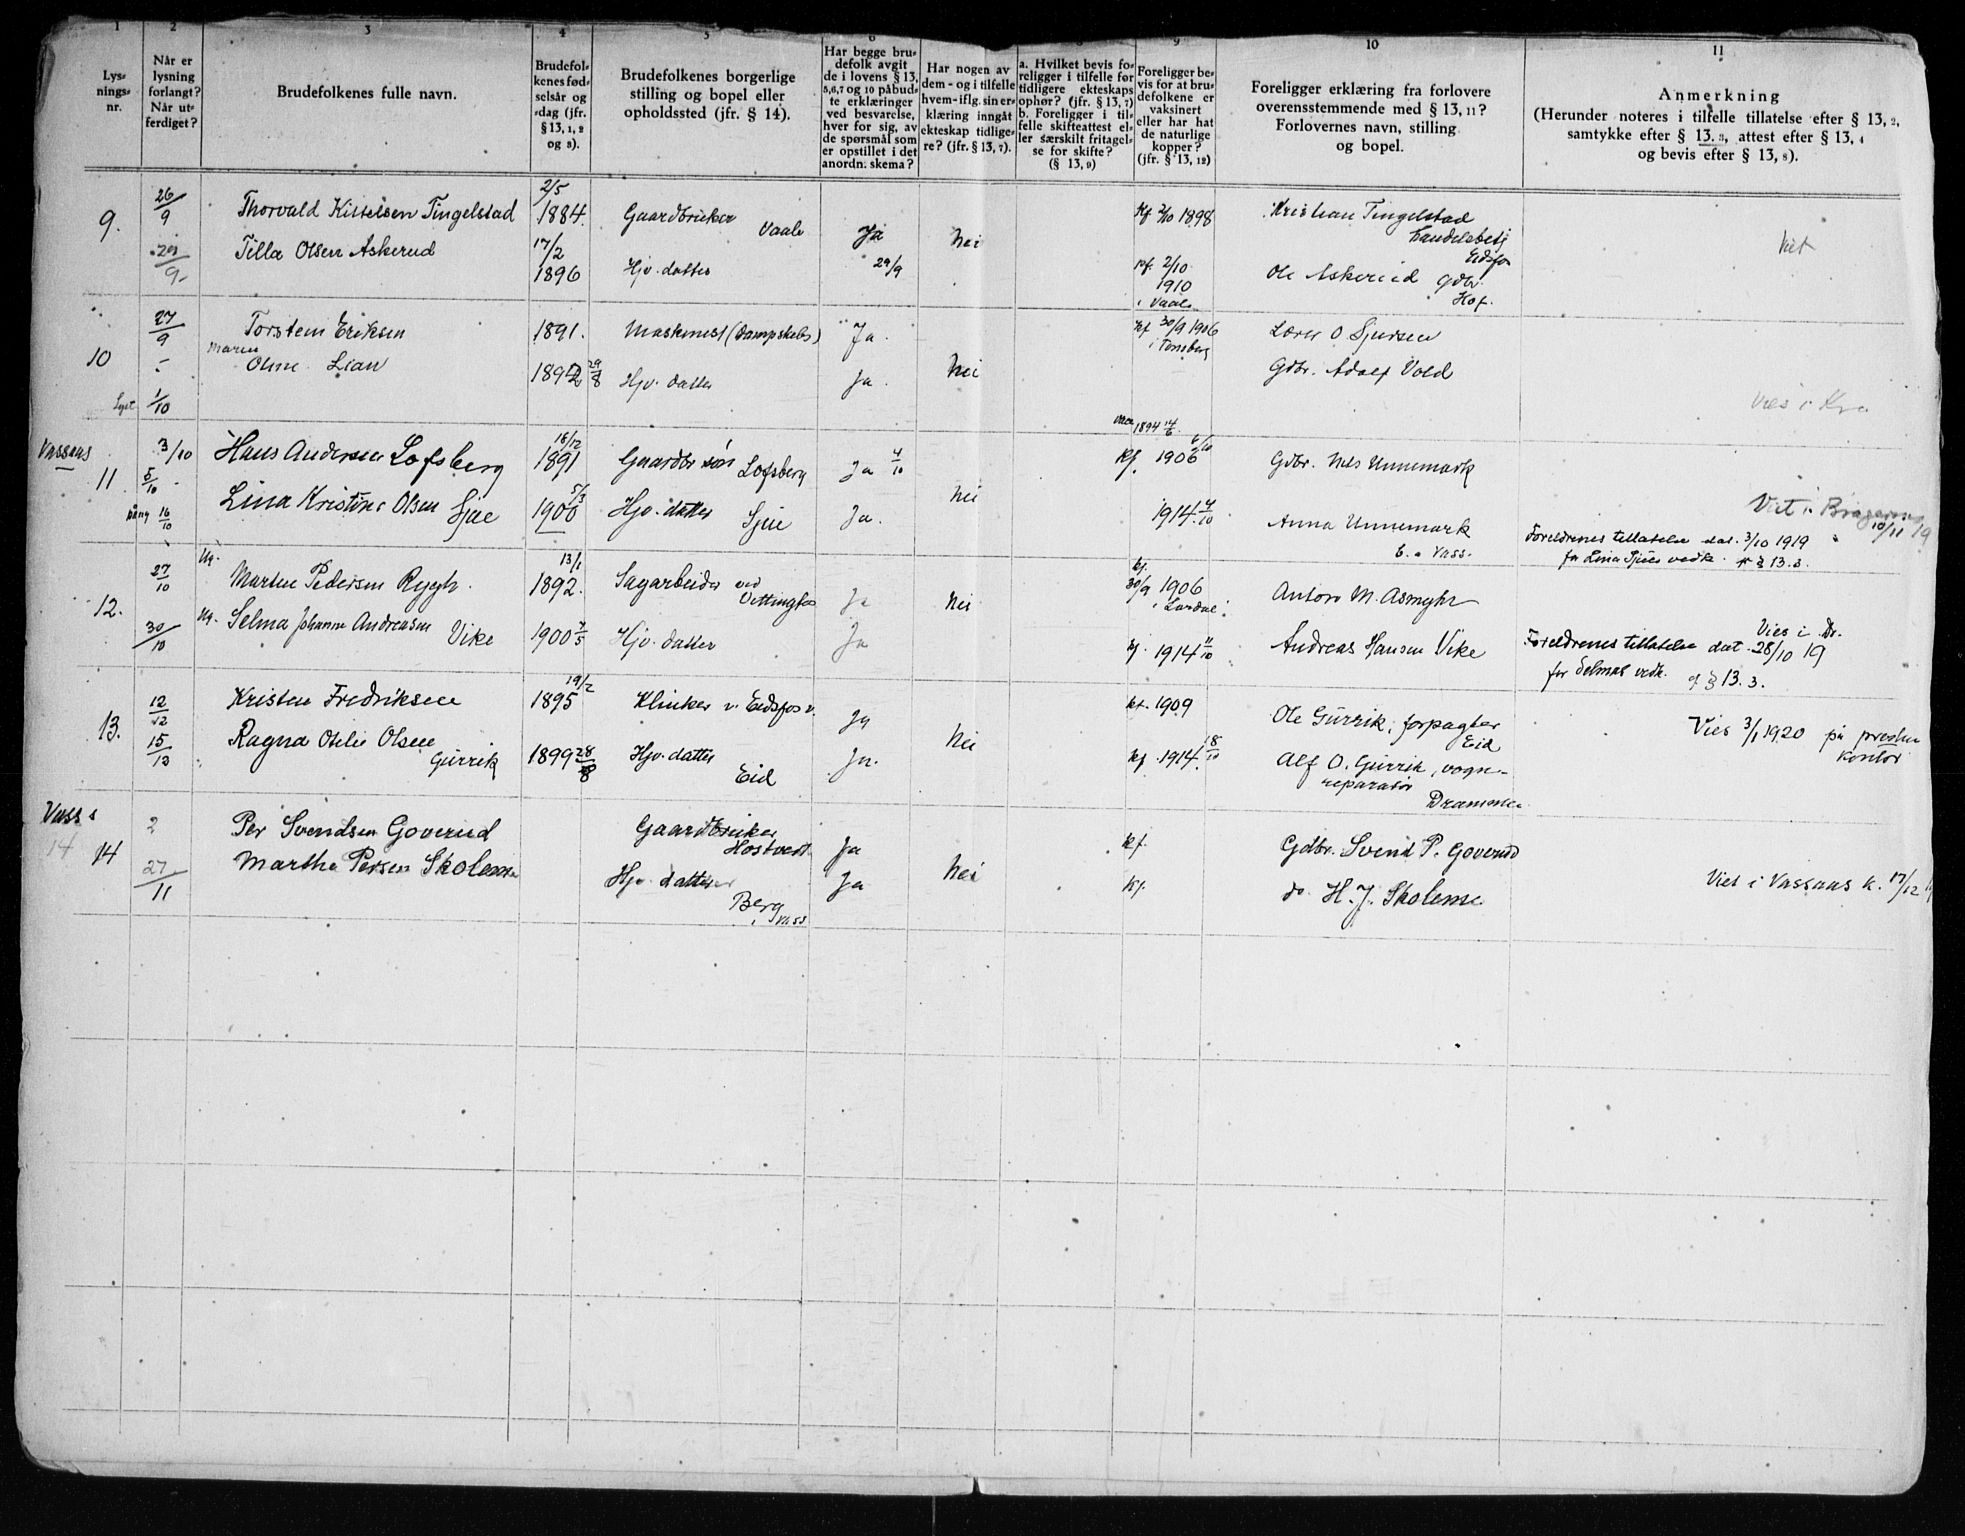 1 2 3 4 5 6 9 10 11
Lys-
nings-
nr.
Når er
lysning
forlangt?
Når ut-
ferdiget?
Brudefolkenes fulle navn.
Brudefol-
kenes fød-
selsår og
-dag (jfr.
§ 13, 1, 2
og 8).
Brudefolkenes borgerlige
stilling og bopel eller
opholdssted (jfr. § 14).
Har begge bru-
defolk avgit
de i lovens § 13,
5,6,7 og 10 påbud-
te erklæringer
ved besvarelse,
hver for sig, av
de spørsmål som
er opstillet i det
anordn. skema?
Har nogen av
dem - og i tilfelle
hvem - iflg. sin er-
klæring inngåt
ekteskap tidlige-
re? (jfr. § 13, 7).
a. Hvilket bevis fo-
religger i tilfelle før
tidligere ekteskaps
ophør? (jfr. § 13, 7)
b. Foreligger i til-
felle skifteattest el-
ler særskilt fritagel-
se for skifte?
(§ 13, 9)
Foreligger be-
vis for at bru-
defolkene er
vaksinert
eller har hat
de naturlige
kopper?
(jfr. § 13, 12)
Foreligger erklæring fra forlovere
overensstemmende med § 13, 11?
Forlovernes navn, stilling
og bopel.
Anmerkning
(Herunder noteres i tilfelle tillatelse efter § 13, 2,
samtykke efter § 13, 3, attest efter § 13, 4
og bevis efter § 13, 8).
9. 26/9 Thorvald Kittelsen Tingelstad 2/5 1884. Gaardbruker Vaale Ja Nei Kf 2/10 1898 Kristian Tingelstad
Eidsfos
29/9 Tilla Olsen Askerud 17/2 1896 Hjv. datter 29/9 2/10 1910 i Vaale Ole Askerud gdbr. Hof.
10 27/9 Torstein Eriksen 1891. Maskinist (Dampskibs) Ja. Kf 30/9 1906 i Tønsberg O Sjursen
Maren
Lian 1892 29/8 Hjv. datter Ja. Nei Gdbr. Adolf Vold
Lyst 1/10 Vies i Kra
1894 14/6
Vassaas 11 3/10 Hans Andersen Lofsberg 18/12 1891 Gaardbr søn Lofsberg Ja 4/10 Kf. 1906 6/10 Gdbr. Nils Unnemark
5/10 Lina Kristine Olsen Sjue 5/3 1900 Hjv. datter Sjue Ja. Nei 1914 4/10 Anna Unnemark Viet i Bragernes 10/11 19
16/10 Vass. Foreldrenes tillatelse dat. 3/10 1919
for Lina Sjues vedk. § 13. 3.
12. 27/10 Ug. Marten Pedersen Ryggh. 13/1 1892. Sagarbeider ved Vittingfos Ja Nei kf. 30/9 1906 i Lardal. Anton M. Asmyhr
30/10 Ug. Selma Johanne Andreasen Vike 1900 7/5 Hjv. datter Ja kf. 1914 11/10 Andreas Hansen Vike Vies i Dr.
Foreldrenes tillatelse dat. 28/10 19
for Selmas vedk. § 13. 3.
13. 12/12 Kristen Fredriksen 19/2 1895 Klinker v. Eidsfos v. Ja kf. 1909 Ole Gürrik, forpagter Eid Vies 3/1 1920 på presten
kontor
15/12 Ragna Otilie Olsen Gürrik 1899 28/8 Hjv. datter Eid Ja. Nei kf. 1914. 18/10 Alf O. Gürrik, vogn-
reparatør
Drammen
Vass 14 14 2 Per Svendsen Goverud Gaardbruker Hostvedt Ja kf. Gdbr. Svend P. Goverud
27/11 Marthe Persen Skolem Hjv. datter Berg i Vass Ja Nei kf. do H. J. Skoleme Viet i Vassaas k. 17/12